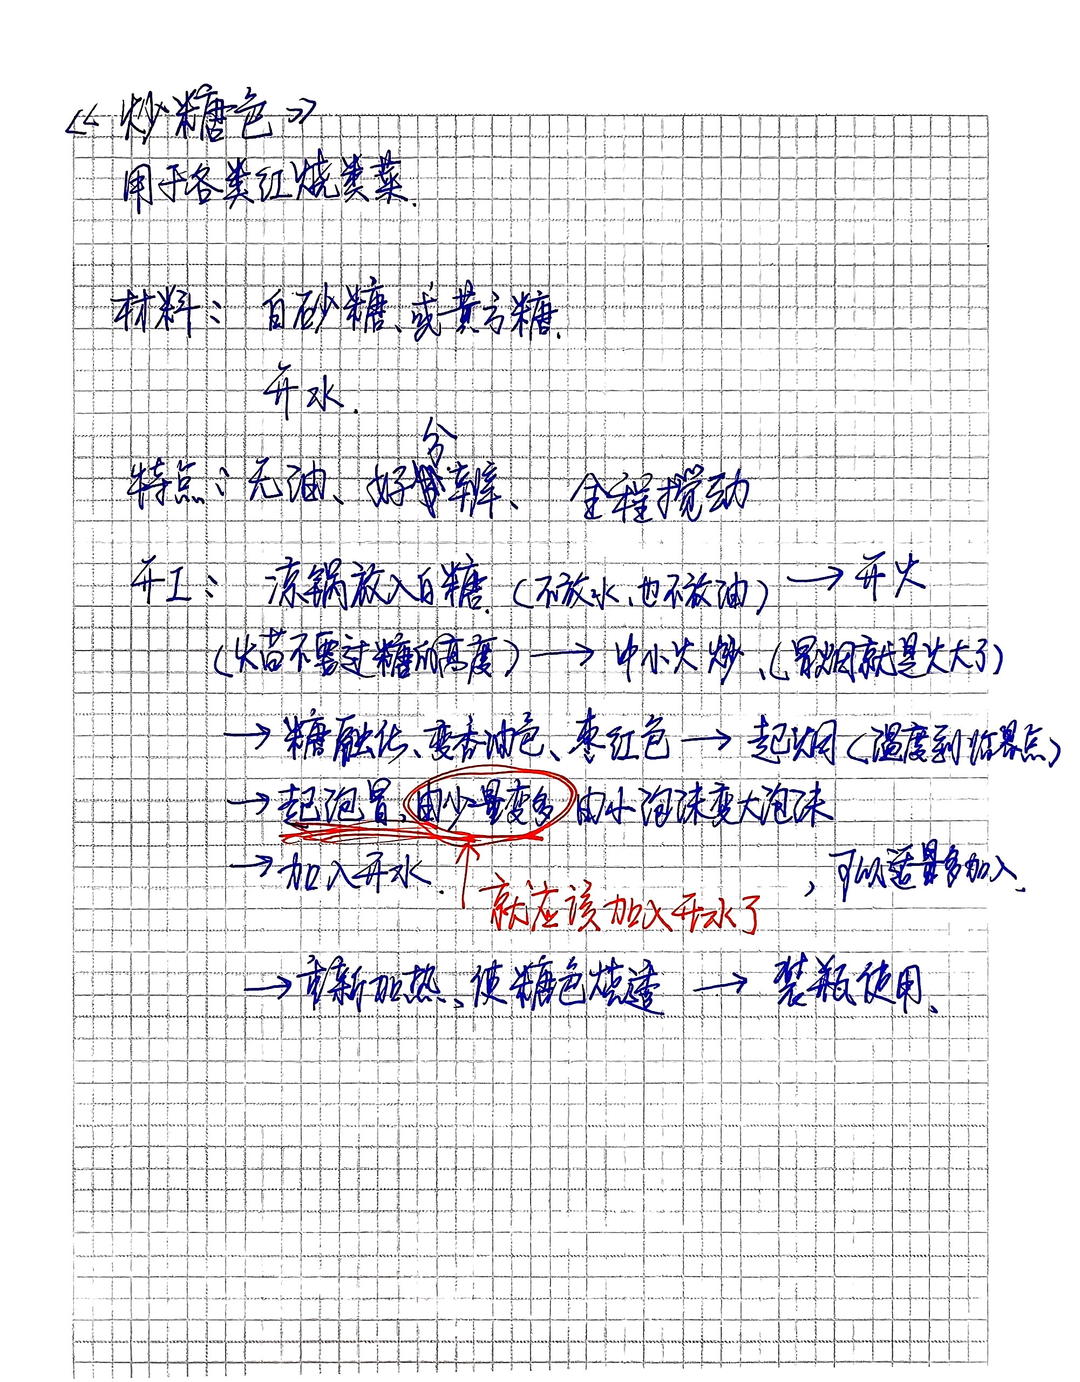 《炒糖色》
用于各类红烧类菜.
材料: 白砂糖、或黄方糖.
开水.
特点: 无油、好分辨、全程搅动
开工: 凉锅放入白糖.(不放水、也不放油) → 开火
(火苗不要过糖的高度) → 中小火炒、(冒烟就是火大了)
→ 糖融化、变香油色、枣红色 → 起烟(温度到临界点)
→ 起泡冒、由少量变多 由小泡沫变大泡沫
→ 加入开水. , 可以适量多加入.
就应该加入开水了
→ 重新加热、使糖色烧透 → 装瓶使用、